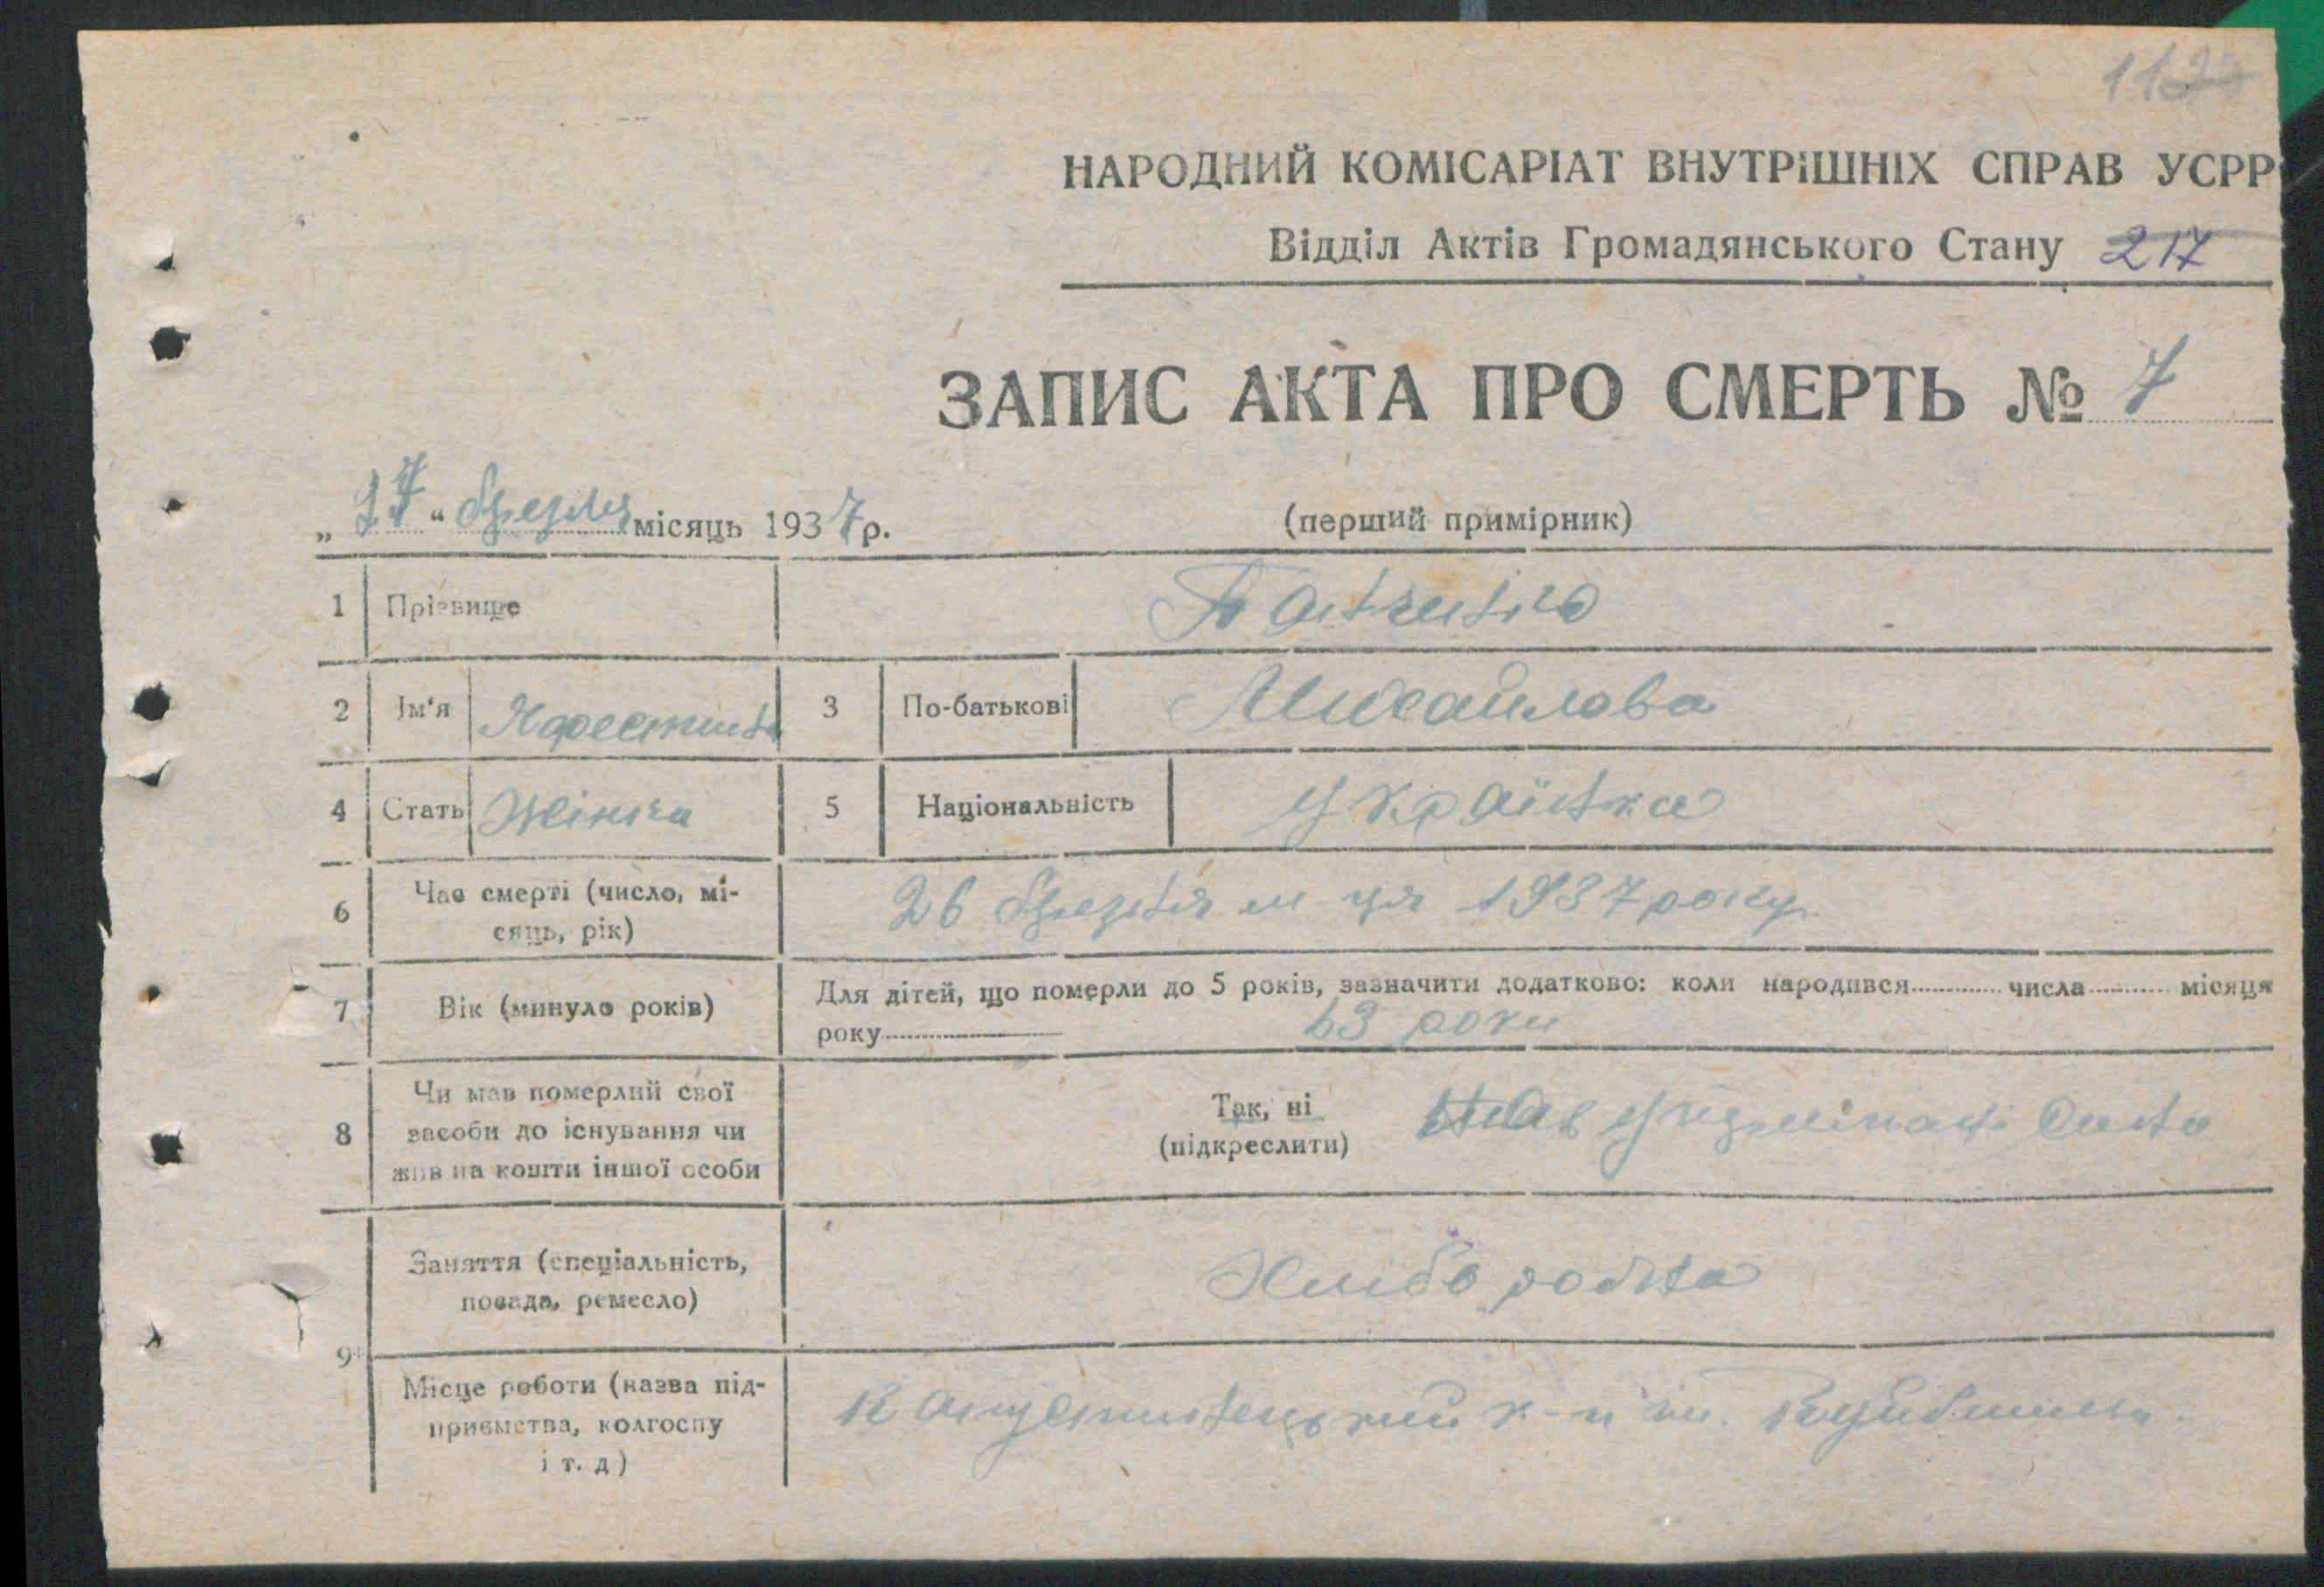 НАРОДНИЙ КОМІСАРІАТ ВНУТРІШНІХ СПРАВ УСРР
Відділ Актів Громадянського Стану 217
ЗАПИС АКТА ПРО СМЕРТЬ № 7
„ 27 “ березня місяць 1937 р.
(перший примірник)
1 Прізвище
2 Ім‘я 3 По-батькові Михайлова
4 Стать Жінка 5 Національність Українка
6 Час смерті (число, мі-
сяць, рік) 26 березня м ця 1937 року
7 Вік (минуло років) Для дітей, що померли до 5 років, зазначити додатково: коли народився числа місяця
року 63 роки
8 Чи мав померлий свої
засоби до існування чи
жив на кошти іншої особи
Так, ні
(підкреслити)
9 Заняття (спеціальність,
посада, ремесло)
Місце роботи (назва під-
приємства, колгоспу
і т. д) к-п ім.